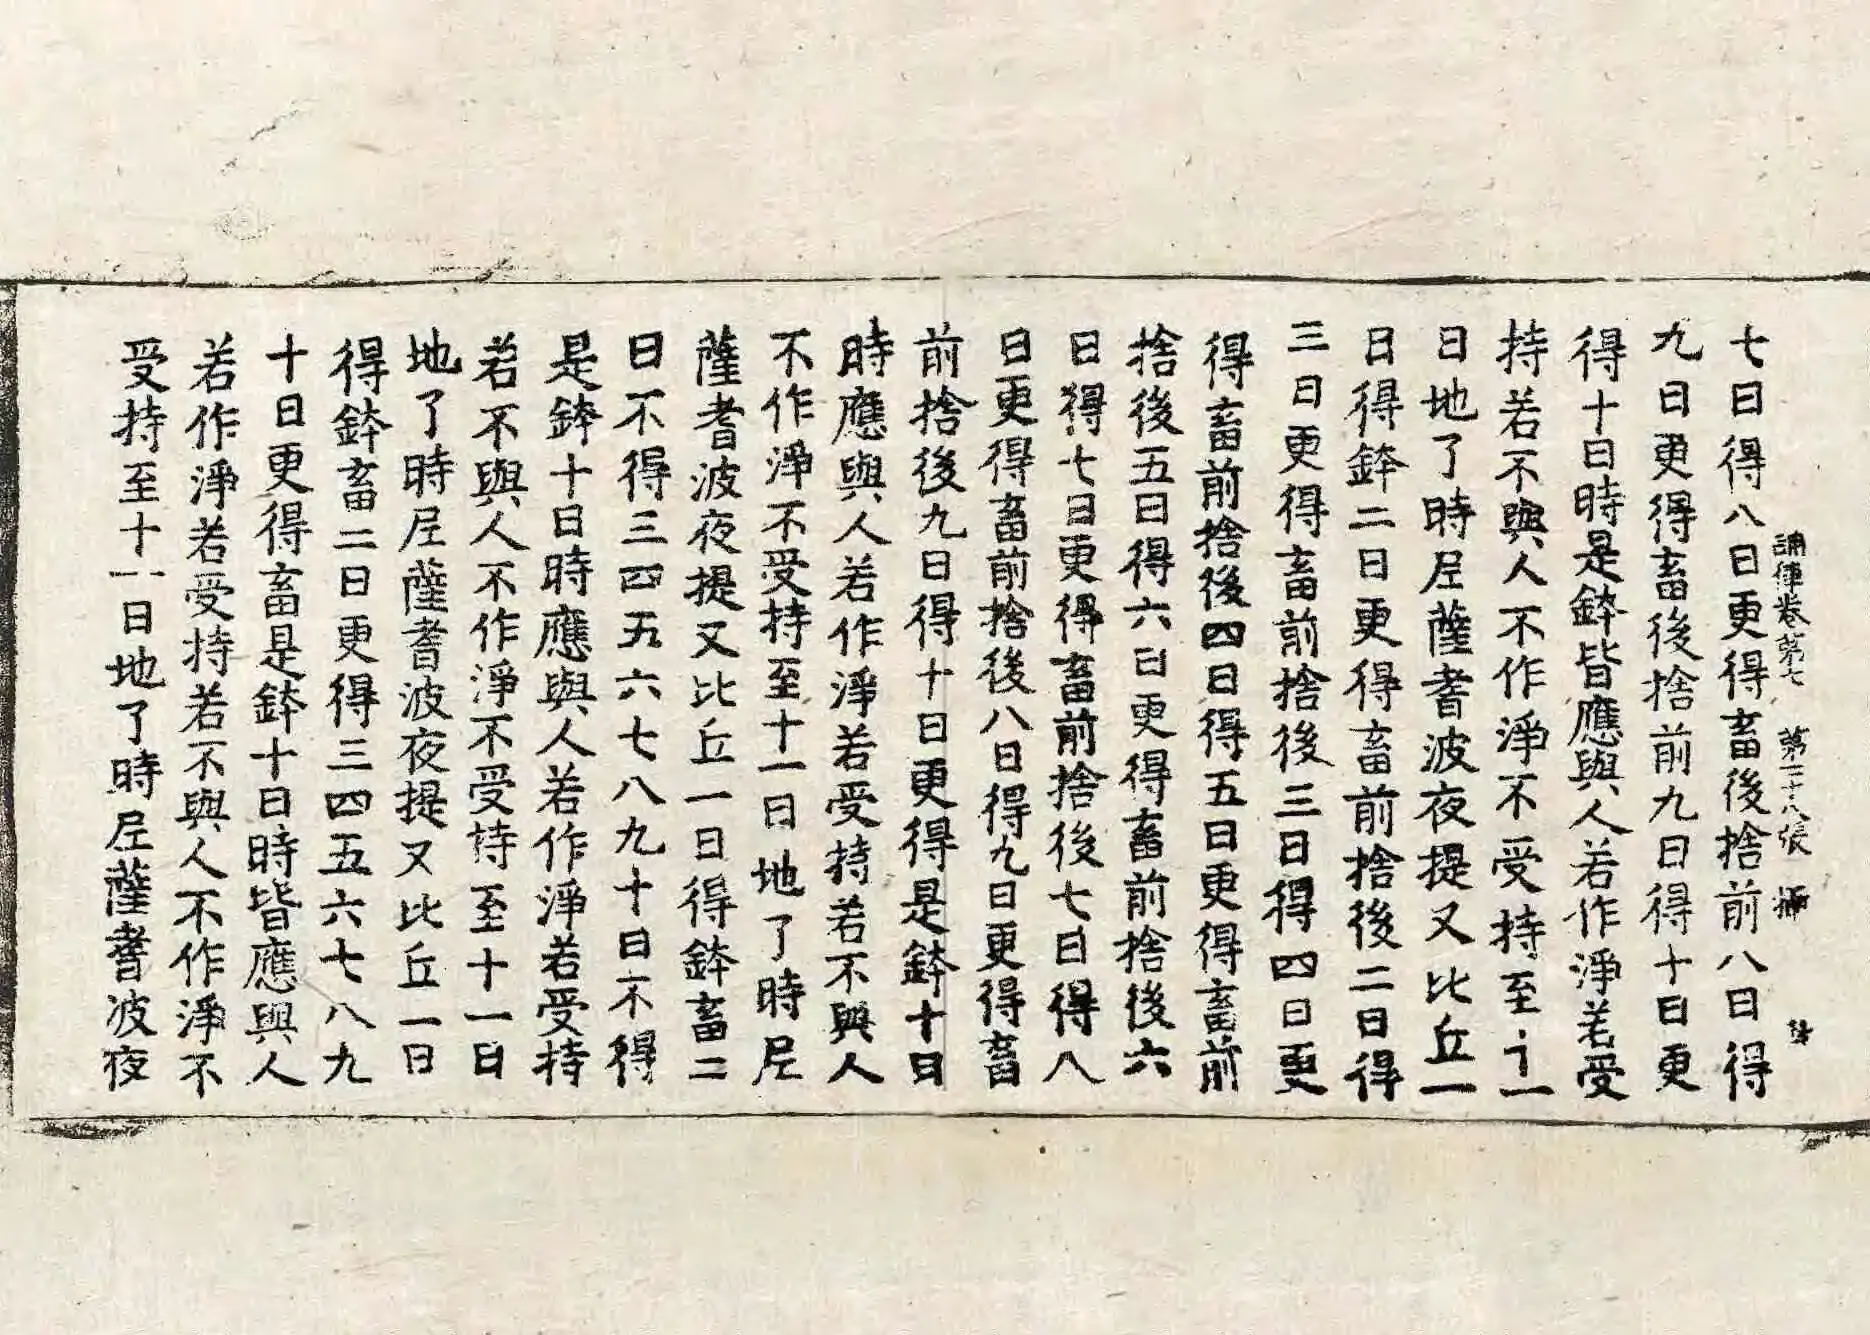 誦律卷第七 第二十八張 攝
七日得八日更得畜後捨前八日得
九日更得畜後捨前九日得十日更
得十日時是鉢皆應與人若作淨若受
持若不與人不作淨不受持至十一
日地了時尼薩耆波夜提又比丘一
日得鉢二日更得畜前捨後二日得
三日更得畜前捨後三日得四日更
得畜前捨後四日得五日更得畜前
捨後五日得六日更得畜前捨後六
日得七日更得畜前捨後七日得八
日更得畜前捨後八日得九日更得畜
前捨後九日得十日更得是鉢十日
時應與人若作淨若受持若不與人
不作淨不受持至十一日地了時尼
薩耆波夜提又比丘一日得鉢畜二
日不得三四五六七八九十日不得
是鉢十日時應與人若作淨若受持
若不與人不作淨不受持至十一日
地了時尼薩耆波夜提又比丘一日
得鉢畜二日更得三四五六七八九
十日更得畜是鉢十日時皆應與人
若作淨若受持若不與人不作淨不
受持至十一日地了時尼薩耆波夜